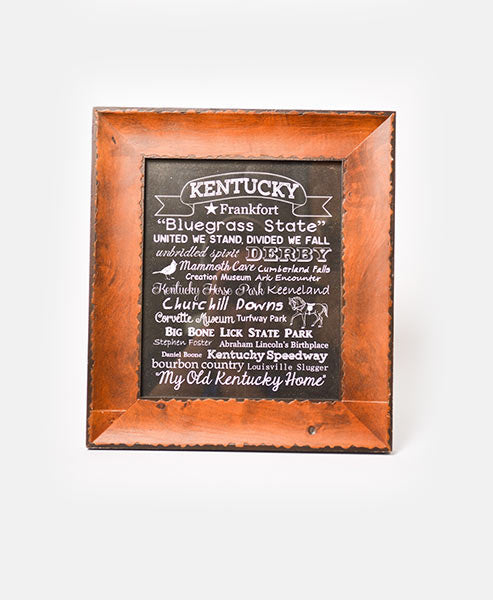 KENTUCKY
★Frankfort
"Bluegrass State"
UNITED WE STAND, DIVIDED WE FALL
unbridled spirit DERBY
Mammoth Cave Cumberland Falls
Creation Museum Ark Encounter
Kentucky Horse Park Keeneland
Churchill Downs
Corvette Museum Turfway Park
BIG BONE LICK STATE PARK
Stephen Foster Abraham Lincoln's Birthplace
Daniel Boone Kentucky Speedway
bourbon country Louisville Slugger
"My Old Kentucky Home"